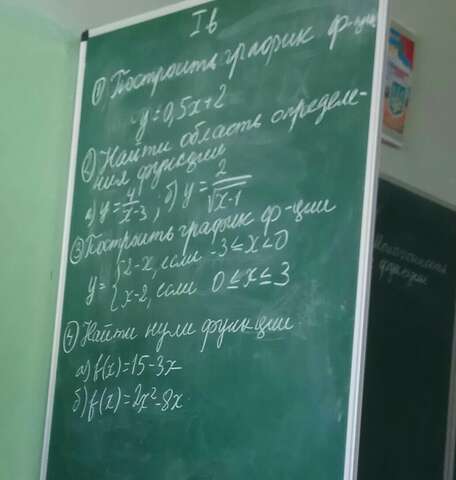 I в
① Построить график ф-ции
y=0,5x+2
② Найти область определе-
ния функции
а) y=4/x-3, б) y=2/√x-1
③ Построить график ф-ции
y={2-x, если -3≤x<0
x-2, если 0≤x≤3
④ Найти нули функции
а) f(x)=15-3x
б) f(x)=2x²-8x
функции